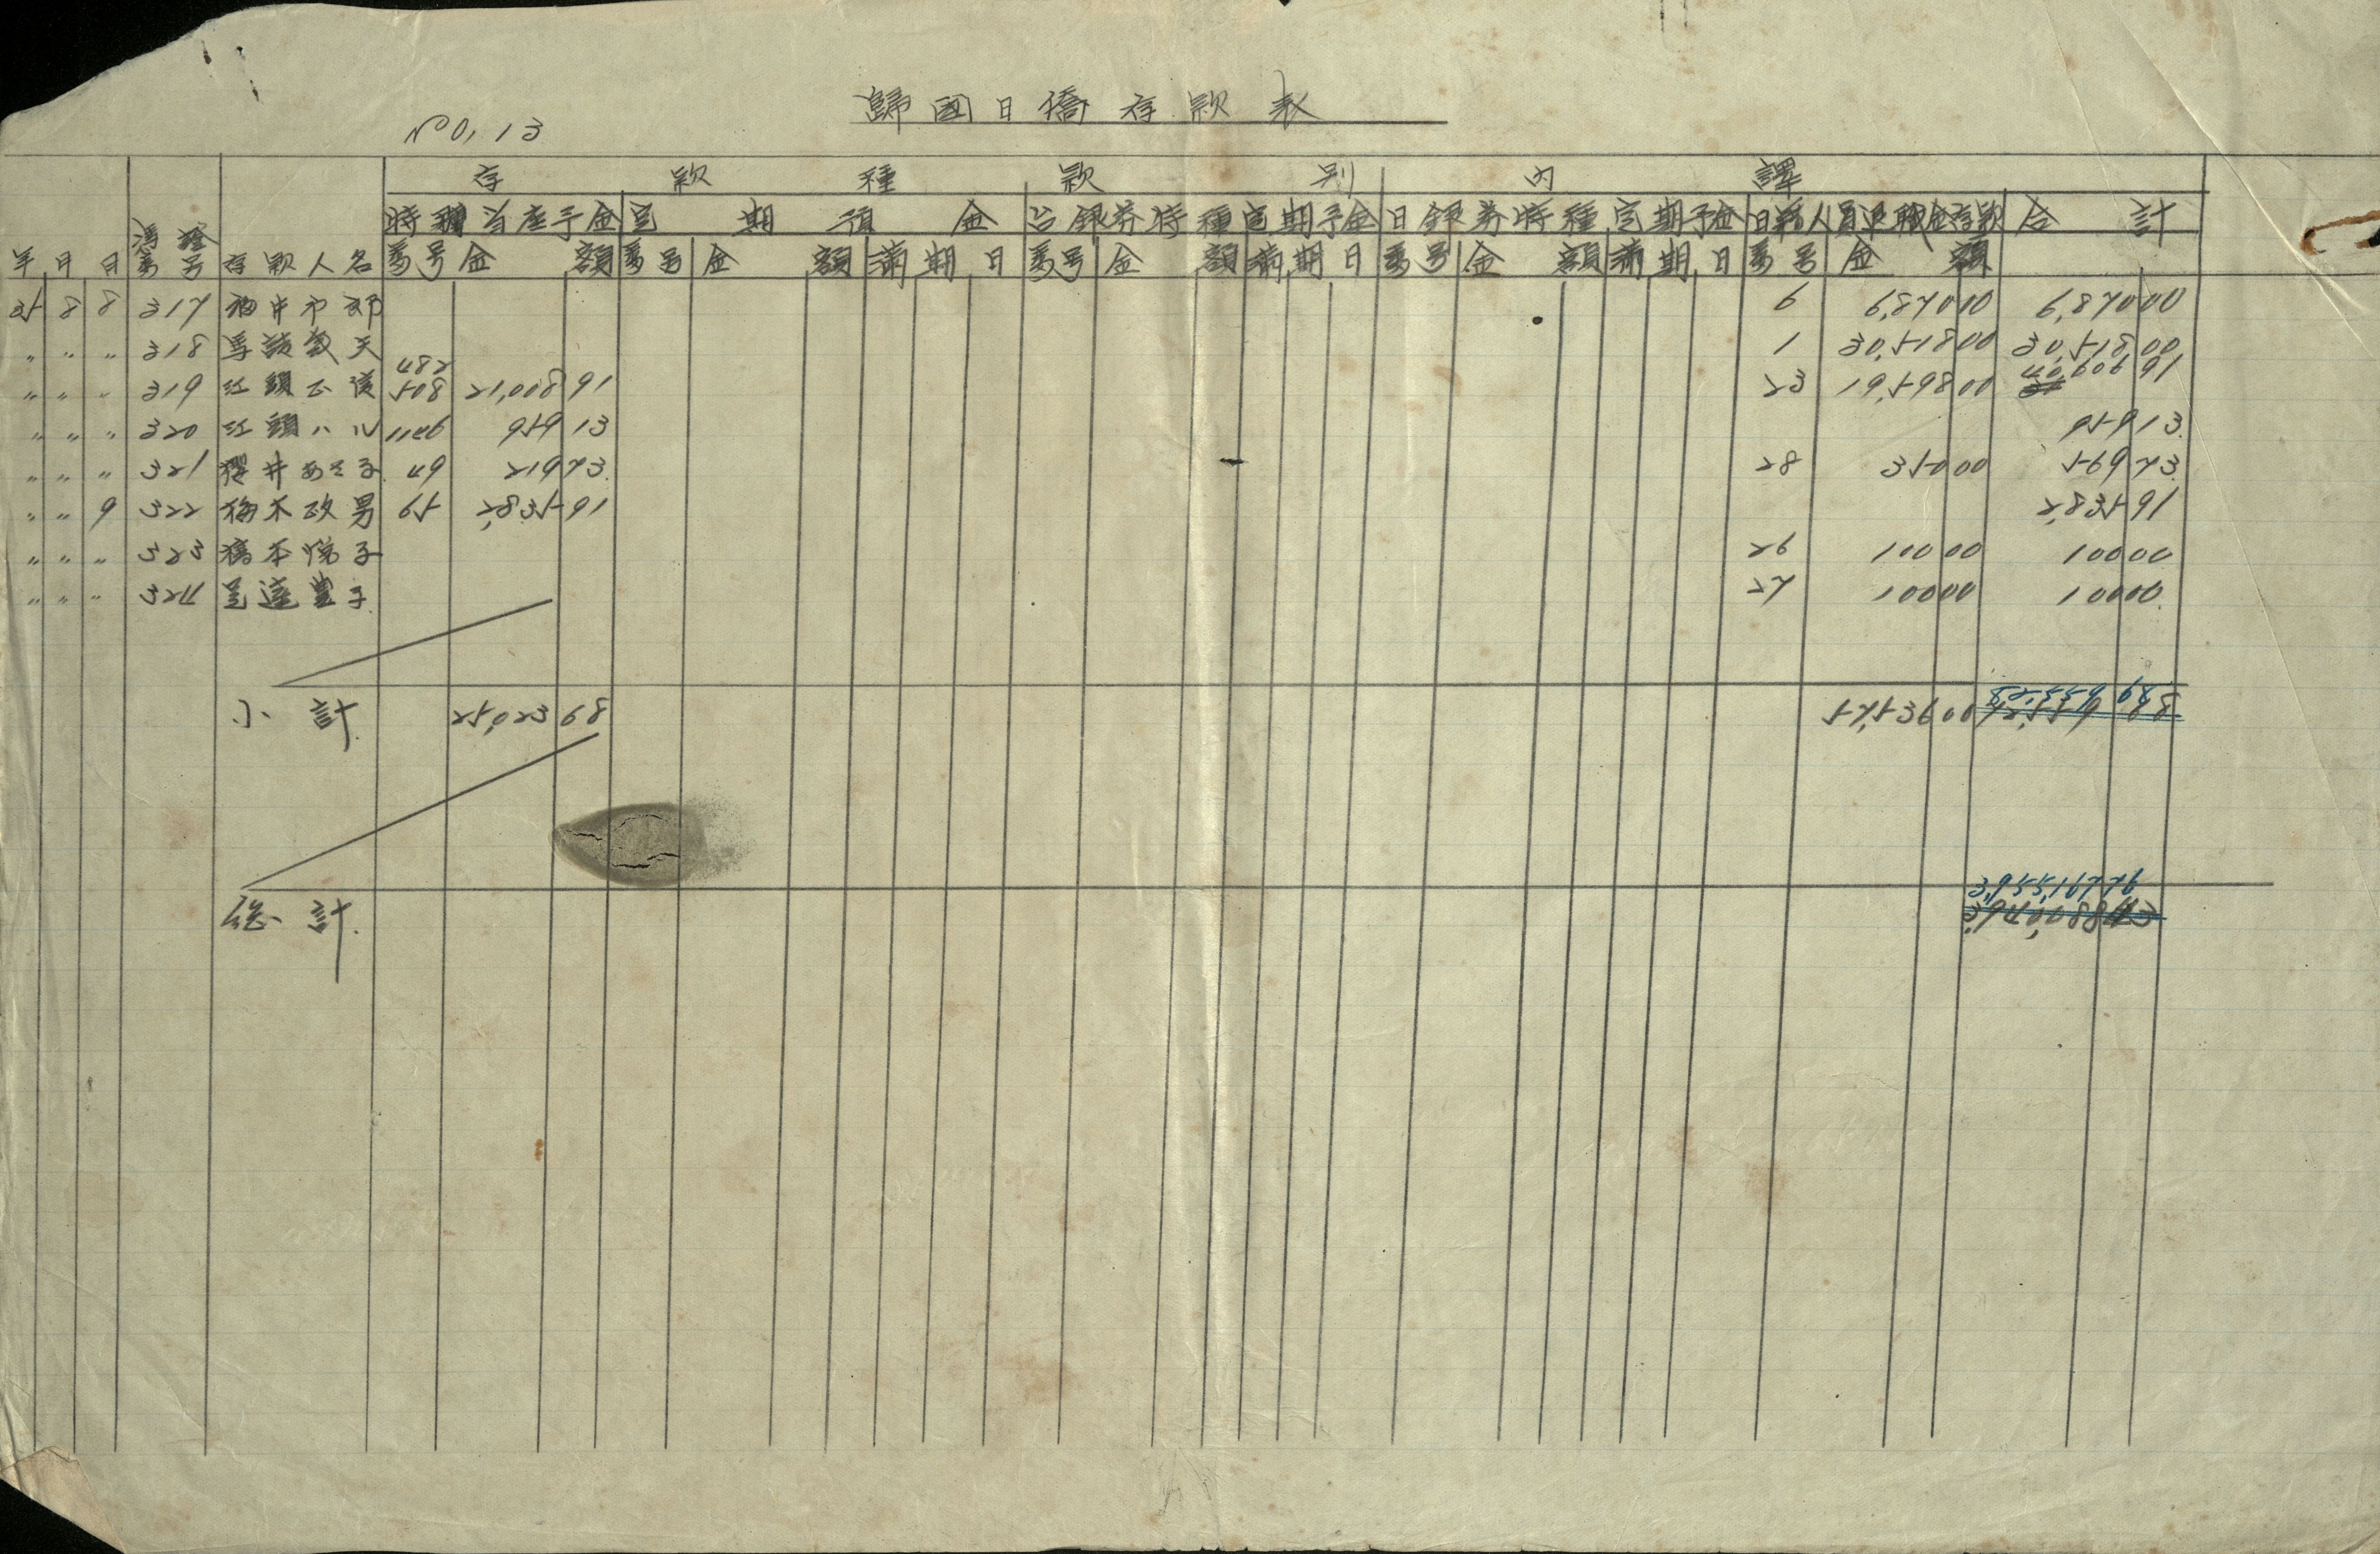 歸國日僑存款表
No. 13
存 款 種 款 別 內 譯
特種当座予金 定期預金 台銀券特種定期予金 日銀券特種定期予金 日籍人員退職金存款 合計
年 月 日 憑證番号 存款人名 番号 金額 番号 金額 満期日 番号 金額 満期日 番号 金額 満期日 番号 金額
35 8 8 317 6 6,870 00 6,870 00
〃 〃 〃 318 1 30,518 00 30,518 00
〃 〃 〃 319 紅頭 482 508 21,008 91 23 19,598 00 40,606 91
〃 〃 〃 320 紅頭ハル 1146 959 13 959 13
〃 〃 〃 321 櫻井あさ子 49 219 73 28 350 00 569 73
〃 〃 9 322 梅木政男 65 2,835 91 2,835 91
〃 〃 〃 323 橋本悦子 26 100 00 100 00
〃 〃 〃 324 豊子 27 100 00 100 00
82,559 68
小計 25,023 68 57,536 00
3,955,167 26
総計